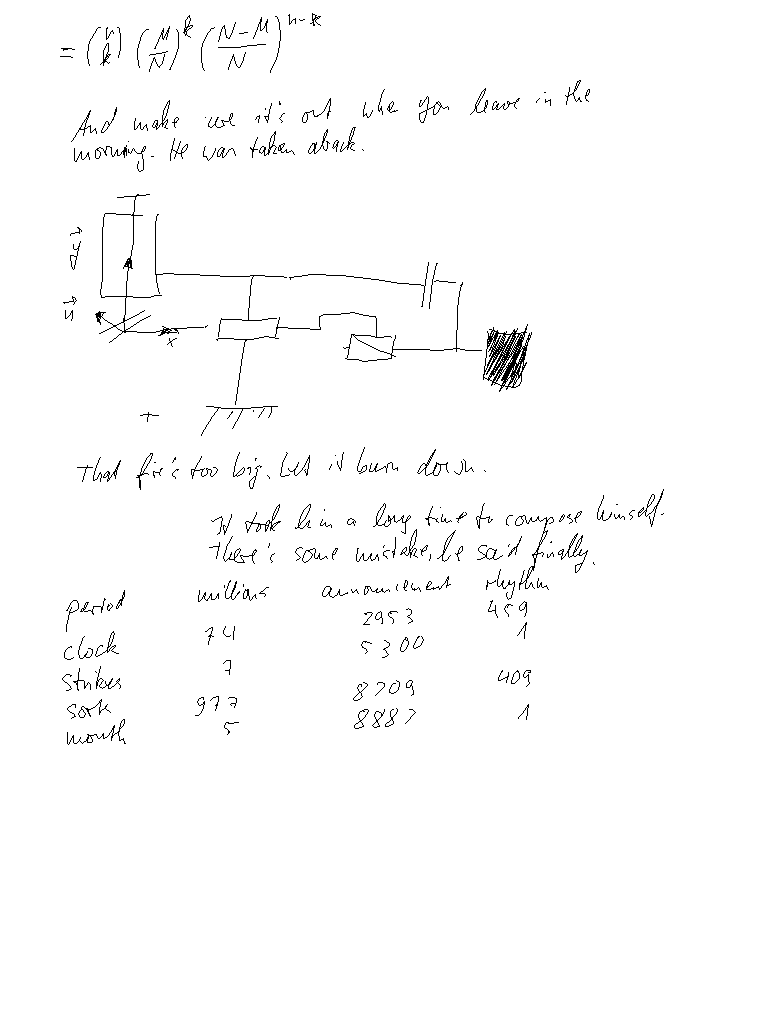 = (n k) (M/N)^k ((N-M)/N)^(n-k)
And make sure it's out when you leave in the
morning. He was taken aback.
x
+
That fire's too big. Let it burn down.
It took him a long time to compose himself.
There's some mistake, he said finally.
period millions announcement rhythm
clock 74 2953 459
strikes 7 5300 1
sort 977 8709 409
month 5 8887 1